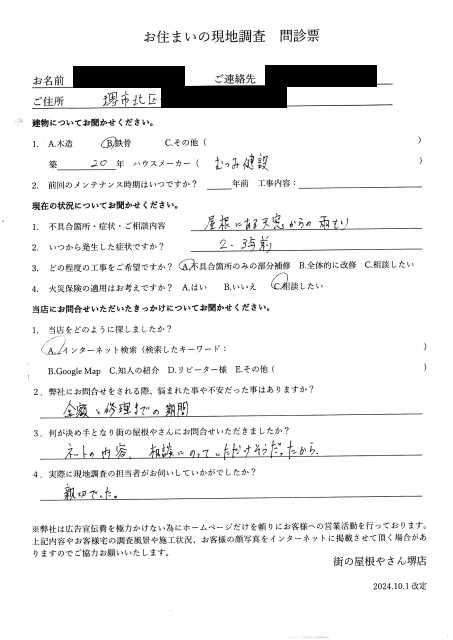 お住まいの現地調査　問診票
お名前　　　ご連絡先
ご住所　堺市北区
建物についてお聞かせください。
1.　A.木造　B.鉄骨　C.その他（　　　）
築　20　年　ハウスメーカー（　むつみ建設　）
2.　前回のメンテナンス時期はいつですか？　＿＿年前　工事内容：
現在の状況についてお聞かせください。
1.　不具合箇所・症状・ご相談内容　屋根にある天窓からの雨もり
2.　いつから発生した症状ですか？　2～3年前
3.　どの程度の工事をご希望ですか？　A.不具合箇所のみの部分補修　B.全体的に改修　C.相談したい
4.　火災保険の適用はお考えですか？　A.はい　B.いいえ　C.相談したい
当店にお問合せいただいたきっかけについてお聞かせください。
1.　当店をどのように探しましたか？
A.インターネット検索（検索したキーワード：　　　）
B.Google Map　C.知人の紹介　D.リピーター様　E.その他（　　　）
2．弊社にお問合せをされる際、悩まれた事や不安だった事はありますか？
金額と修理までの期間
3．何が決め手となり街の屋根やさんにお問合せいただきましたか？
ネットの内容、相談にのっていただけそうだったから。
4．実際に現地調査の担当者がお伺いしていかがでしたか？
親切でした。
※弊社は広告宣伝費を極力かけない為にホームページだけを頼りにお客様への営業活動を行っております。
上記内容やお客様宅の調査風景や施工状況、お客様の顔写真をインターネットに掲載させて頂く場合があ
りますのでご協力お願いいたします。
街の屋根やさん堺店
2024.10.1 改定